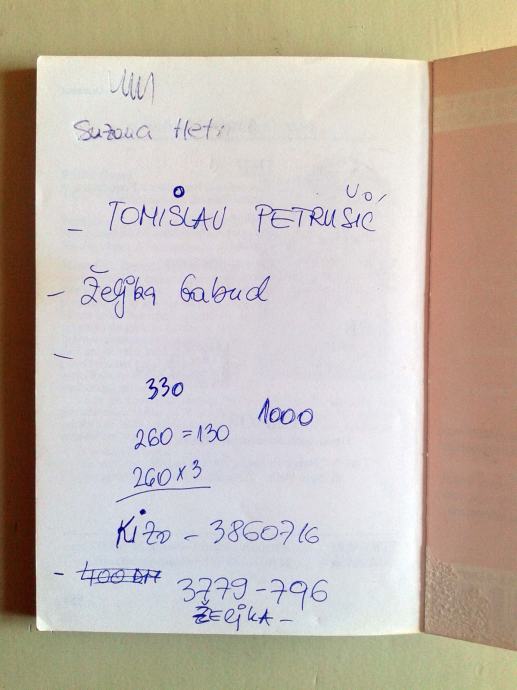 Suzana
- TOMISLAV PETRUŠIĆ
- Željka Gabud
-
330
1000
260 = 130
260 x 3
Kizo - 3860716
- 400 DM
3779-796
ŽELJKA -